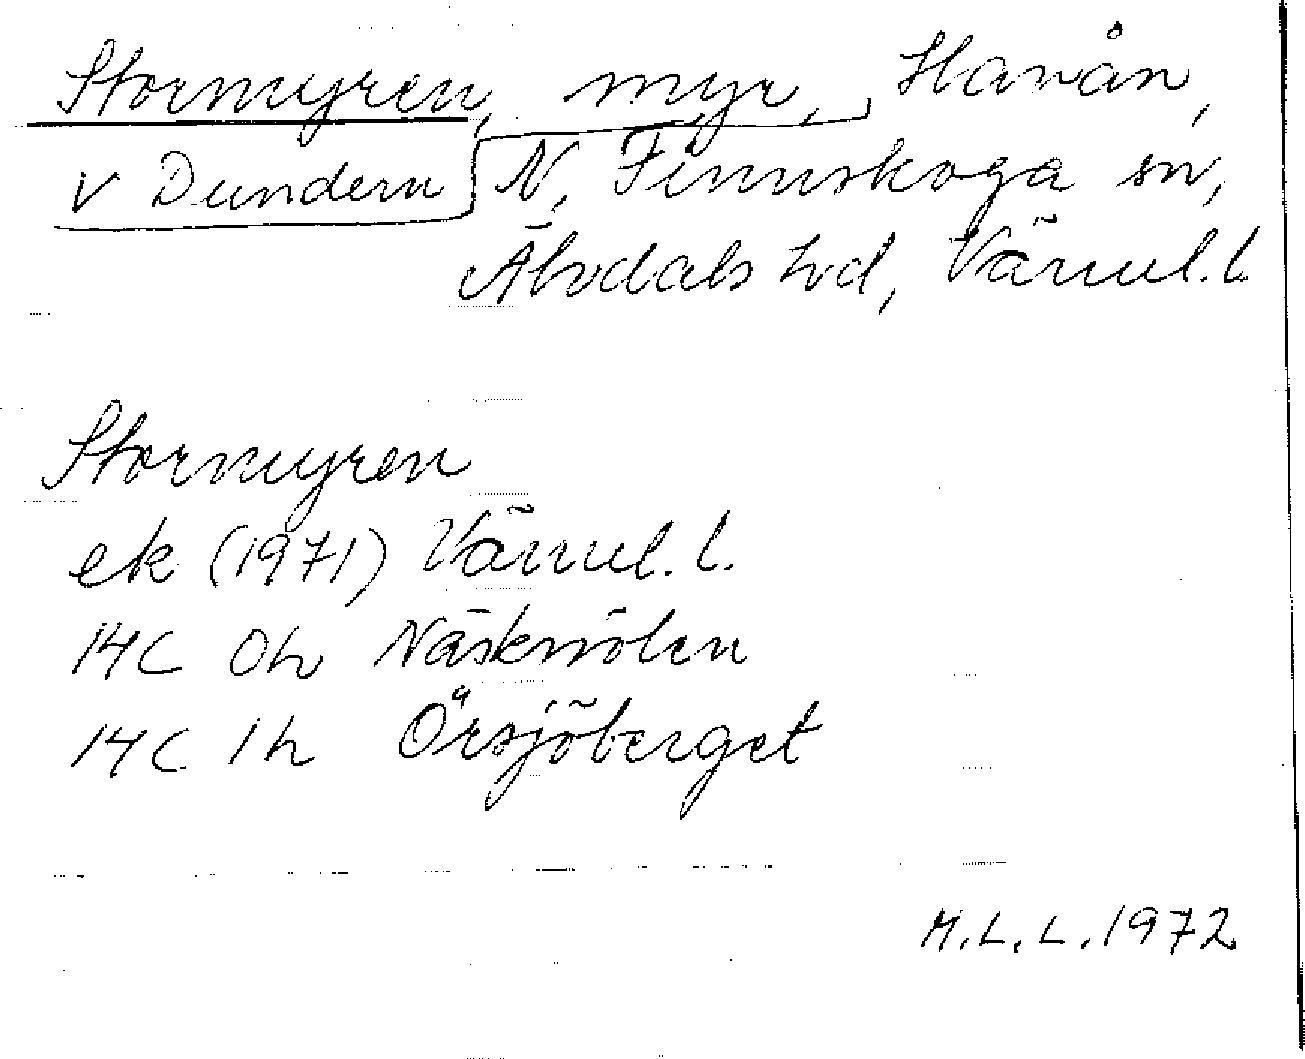 Stormyren, myr, Havån,
v Dundern N. Finnskoga sn,
Älvdals hd, Värml. l.
Stormyren
ek (1971) Värml. l.
14C 0h Näsknölen
14C 1h Örsjöberget
M.L.L. 1972